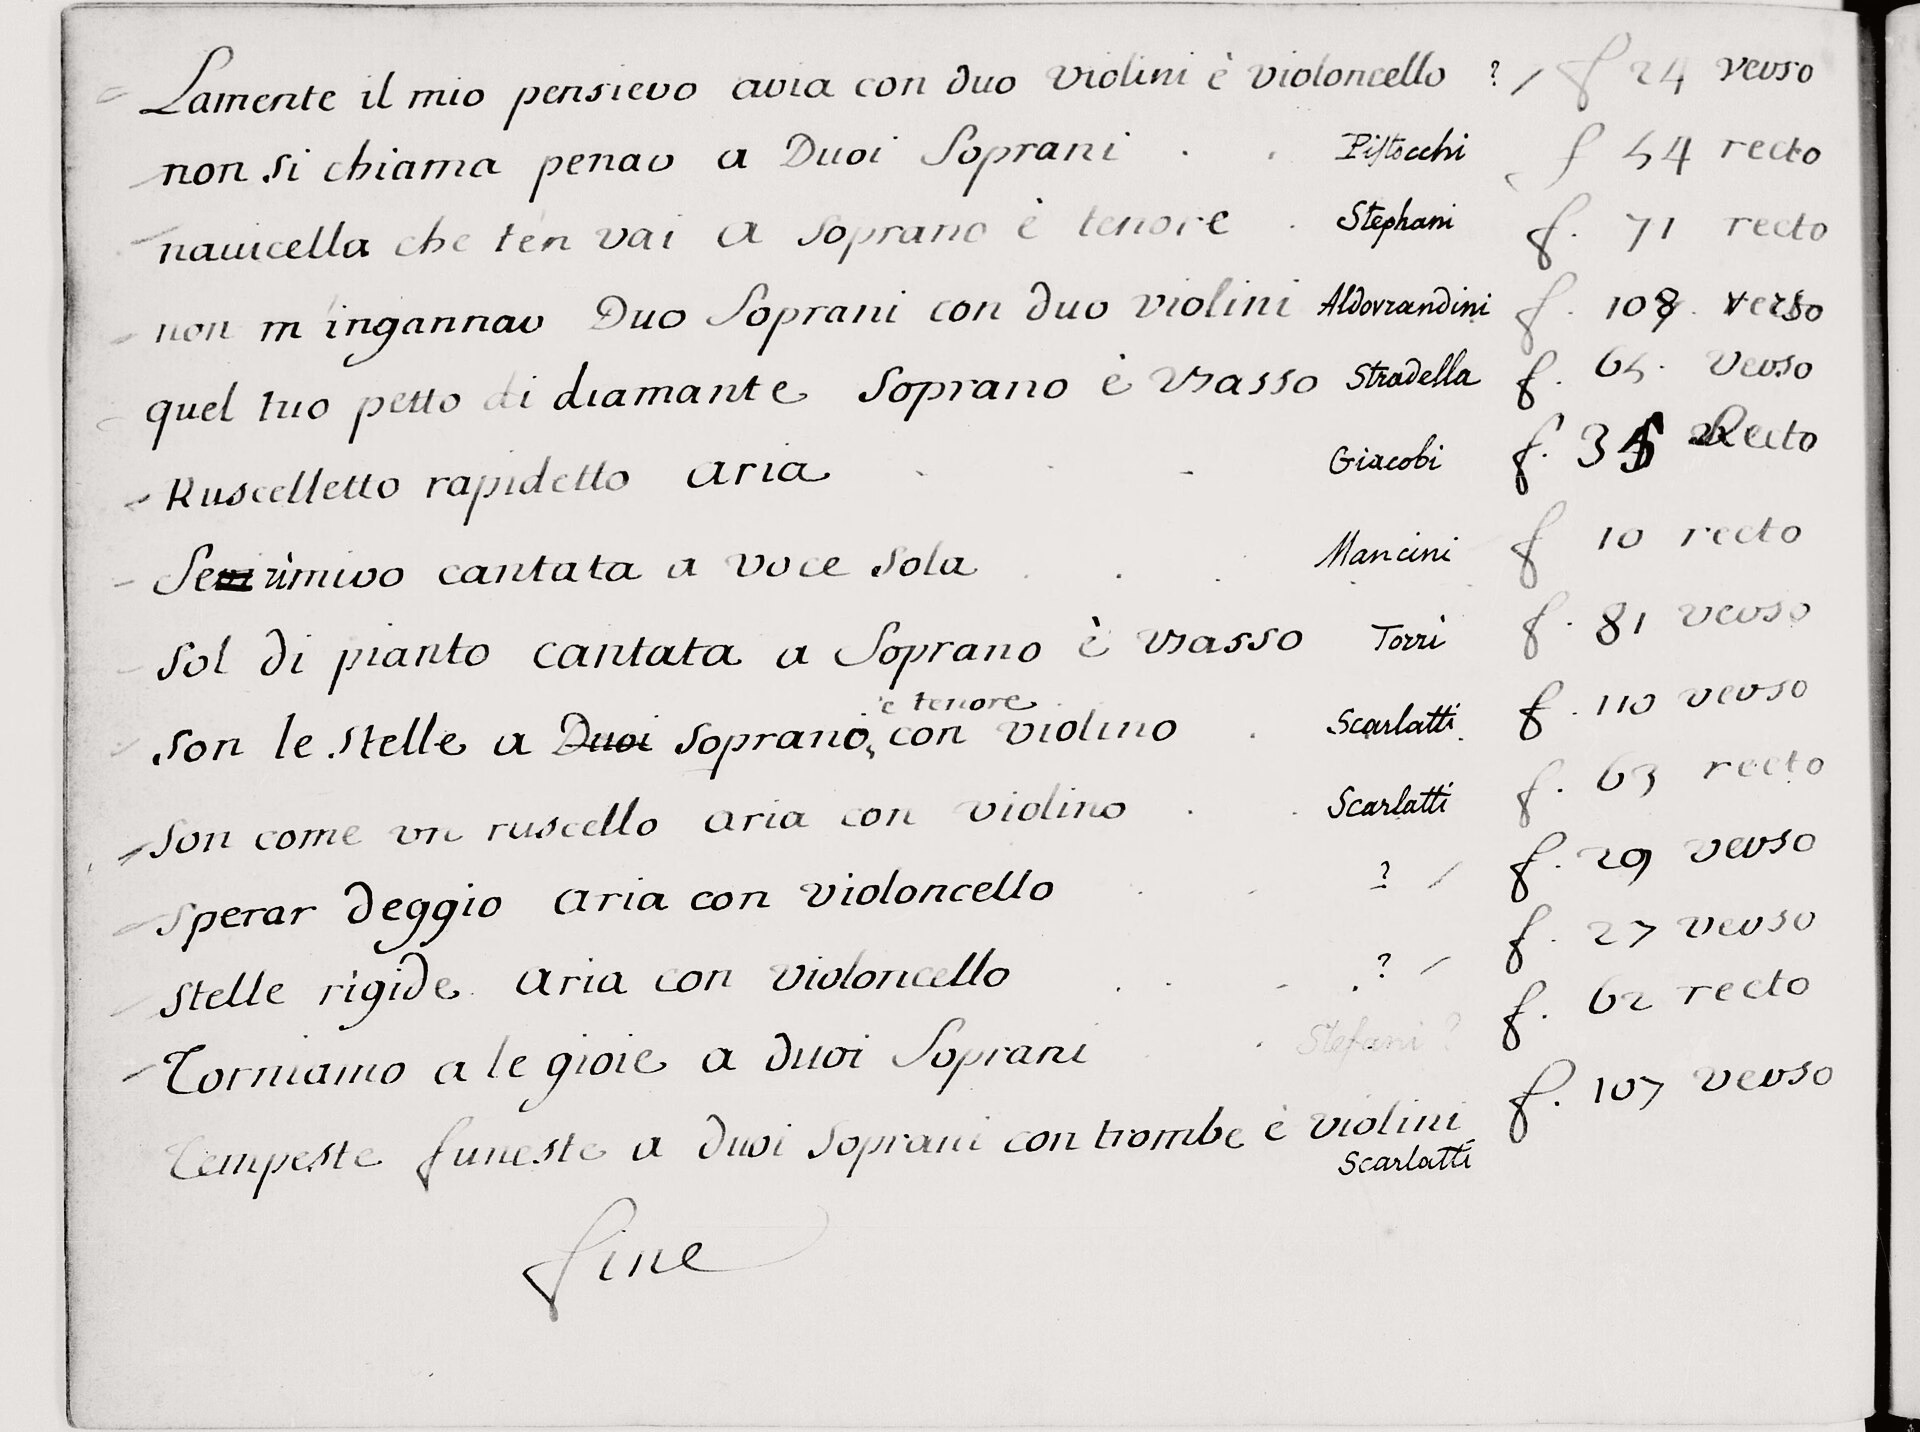 Lamente il mio pensiero aria con duo violini è violoncello ? / f 24 verso
non si chiama penar a Duoi Soprani . . Pistocchi f 54 recto
nauicella che ten vai a soprano è tenore . Stephani f. 71 recto
non m'ingannar Duo Soprani con duo violini Aldovrandini f. 108. verso
quel tuo petto di diamante Soprano è Basso Stradella f. 65. verso
Ruscelletto rapidetto aria . . - Giacobi f. 35 Recto
cantata a voce sola . . . Mancini f 10 recto
Sol di pianto cantata a Soprano è Basso Torri f. 81 verso
son le stelle a Duoi soprano, è tenore con violino . Scarlatti f. 110 verso
son come vn ruscello aria con violino . . Scarlatti f. 63 recto
sperar deggio aria con violoncello . . ? / f. 29 verso
stelle rigide aria con violoncello . . - . ? / f. 27 verso
Torniamo a le gioie a duoi Soprani . . Stefani ? f. 62 recto
Tempeste funeste a duoi soprani con trombe è violini f. 107 verso
Scarlatti
fine